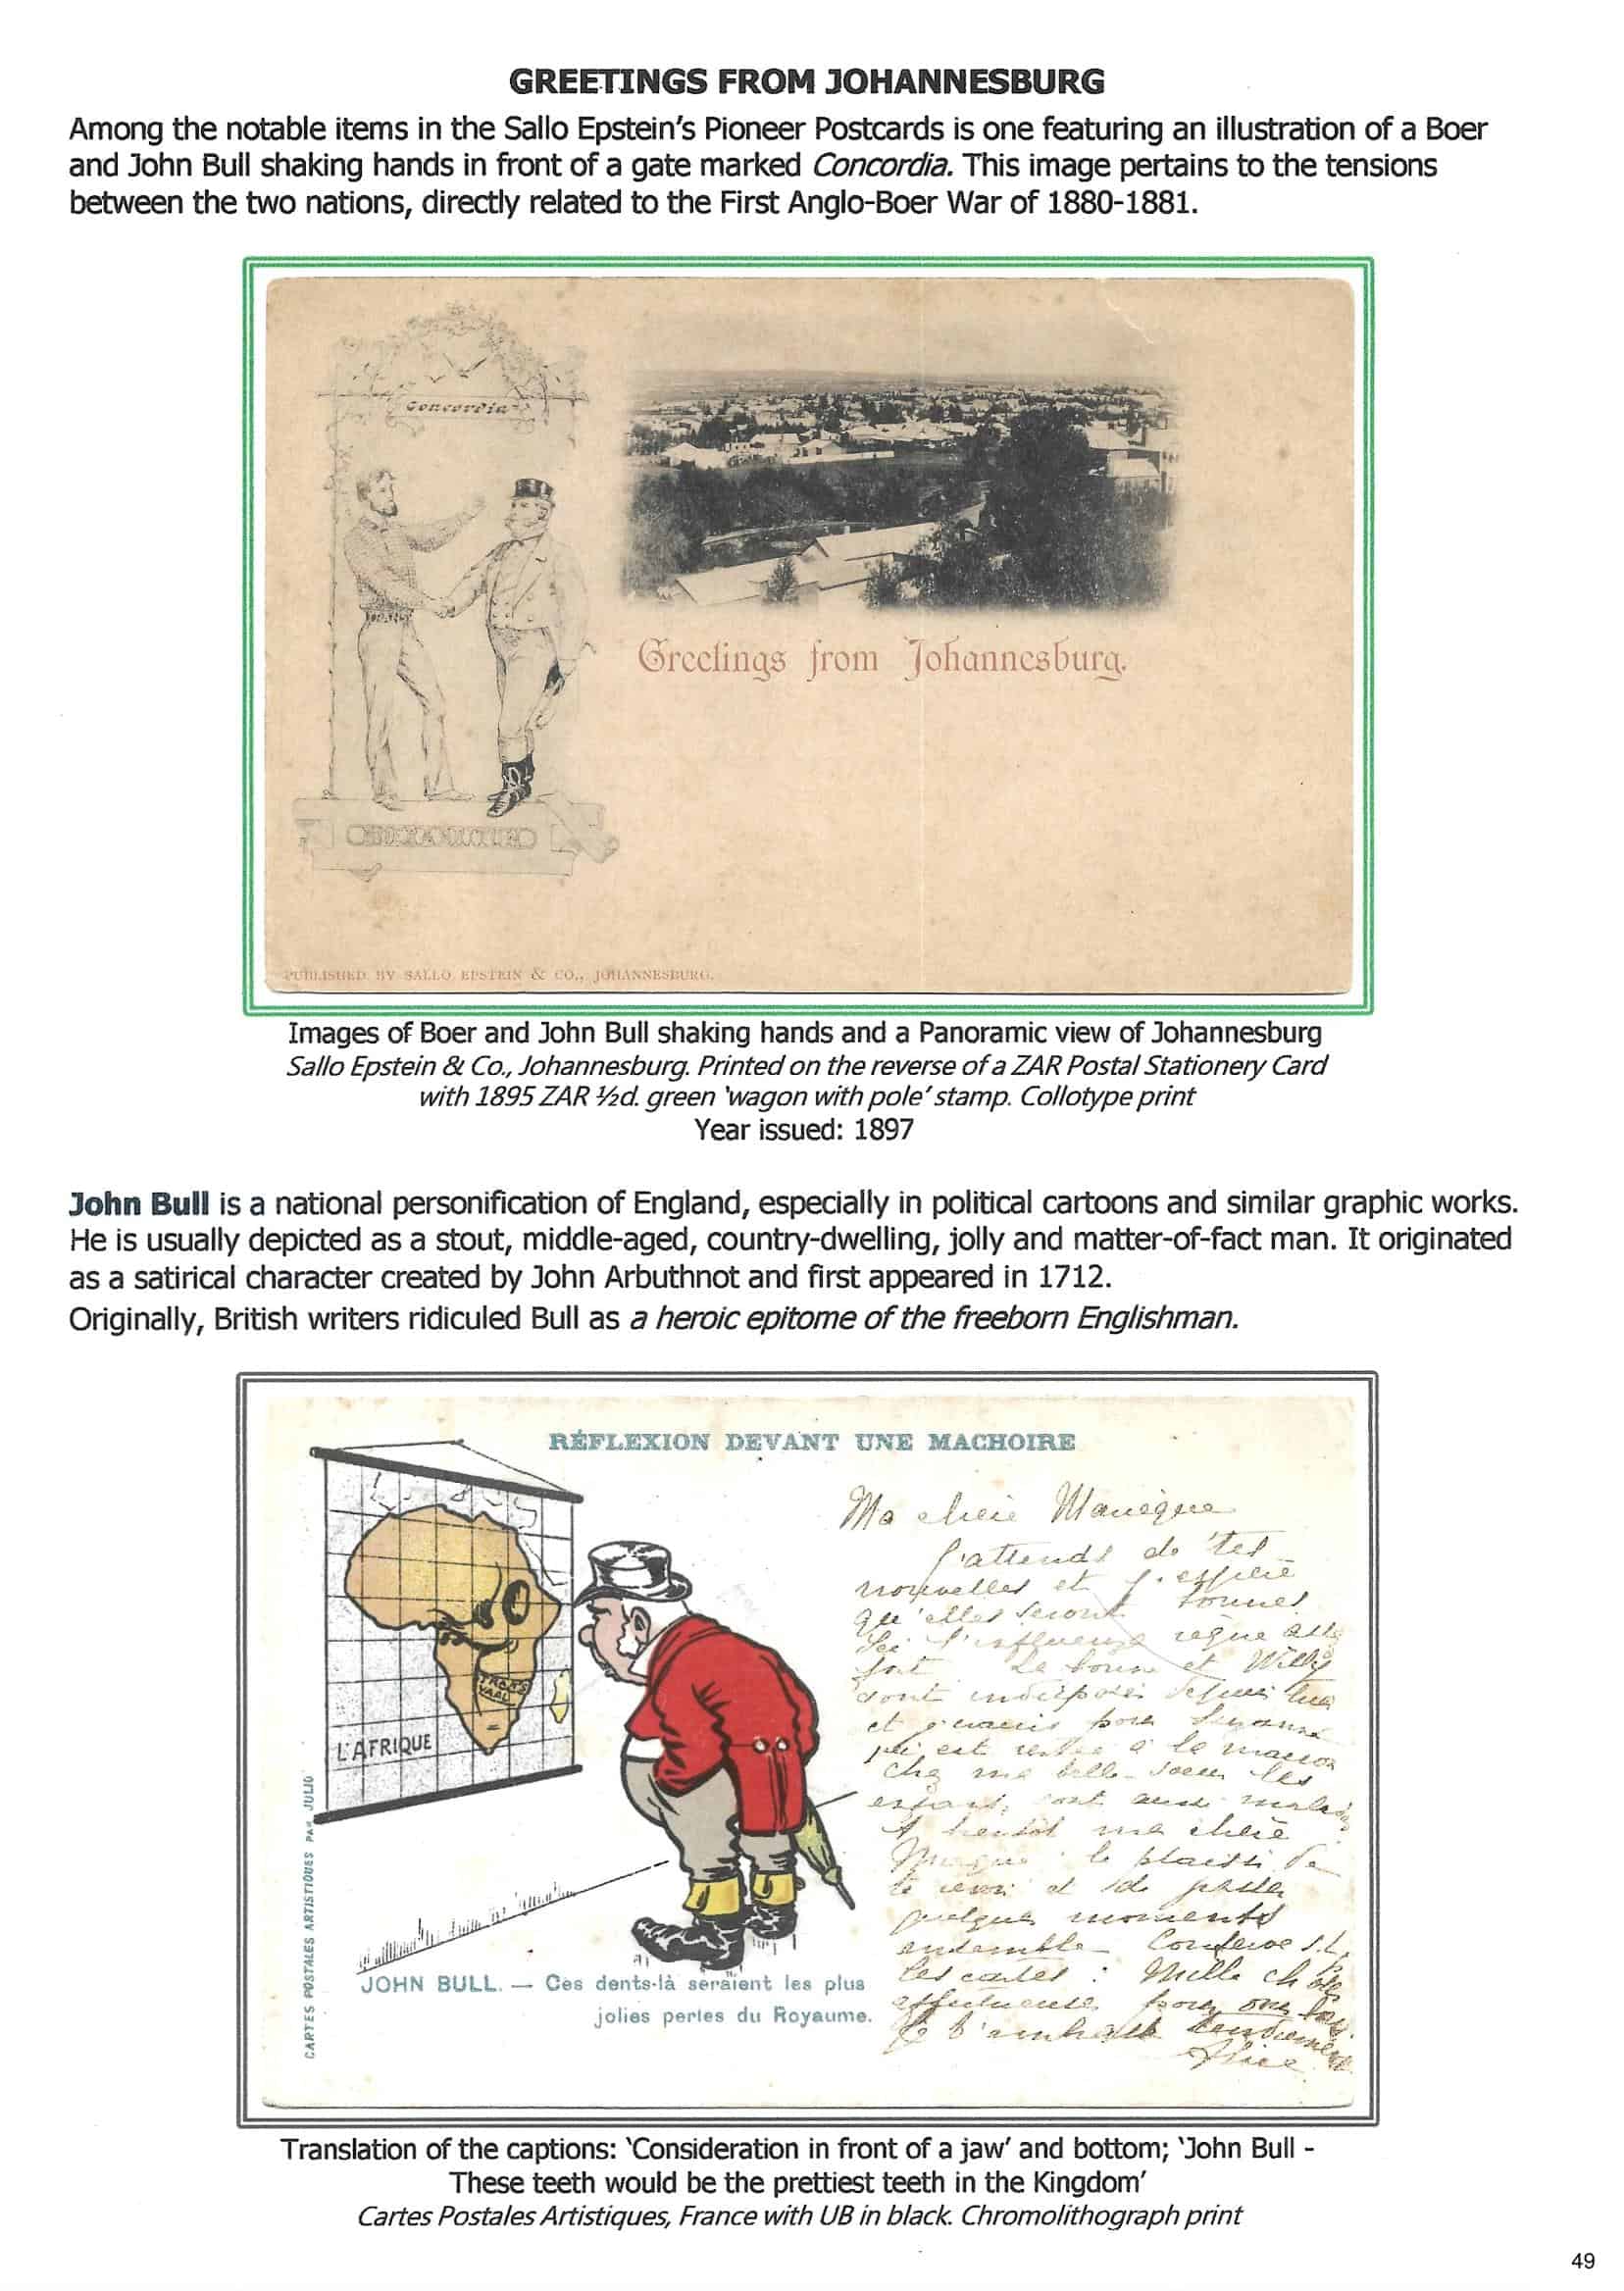 GREETINGS FROM JOHANNESBURG
Among the notable items in the Sallo Epstein's Pioneer Postcards is one featuring an illustration of a Boer
and John Bull shaking hands in front of a gate marked Concordia. This image pertains to the tensions
between the two nations, directly related to the First Anglo-Boer War of 1880-1881.
Concordia
TRANS
Greetings from Johannesburg.
PUBLISHED BY SALLO EPSTEIN & CO., JOHANNESBURG.
Images of Boer and John Bull shaking hands and a Panoramic view of Johannesburg
Sallo Epstein & Co., Johannesburg. Printed on the reverse of a ZAR Postal Stationery Card
with 1895 ZAR ½d. green 'wagon with pole' stamp. Collotype print
Year issued: 1897
John Bull is a national personification of England, especially in political cartoons and similar graphic works.
He is usually depicted as a stout, middle-aged, country-dwelling, jolly and matter-of-fact man. It originated
as a satirical character created by John Arbuthnot and first appeared in 1712.
Originally, British writers ridiculed Bull as a heroic epitome of the freeborn Englishman.
RÉFLEXION DEVANT UNE MACHOIRE
TRANS
VAAL
L'AFRIQUE
CARTES POSTALES ARTISTIQUES PAR JULIO
Ma chère
J'attends de tes
nouvelles et j'espère
qu'elles seront bonnes
Ici l'influenza règne
et Willy
sont
et
est à la maison
chez ma belle-soeur les
enfants, sont aussi
A bientôt ma chère
le plaisir de
te revoir et de passer
quelques moments
ensemble
les cartes : Mille choses
affectueuses pour
Je t'embrasse tendrement
Alice
JOHN BULL. — Ces dents-là seraient les plus
jolies perles du Royaume.
Translation of the captions: 'Consideration in front of a jaw' and bottom; 'John Bull -
These teeth would be the prettiest teeth in the Kingdom'
Cartes Postales Artistiques, France with UB in black. Chromolithograph print
49